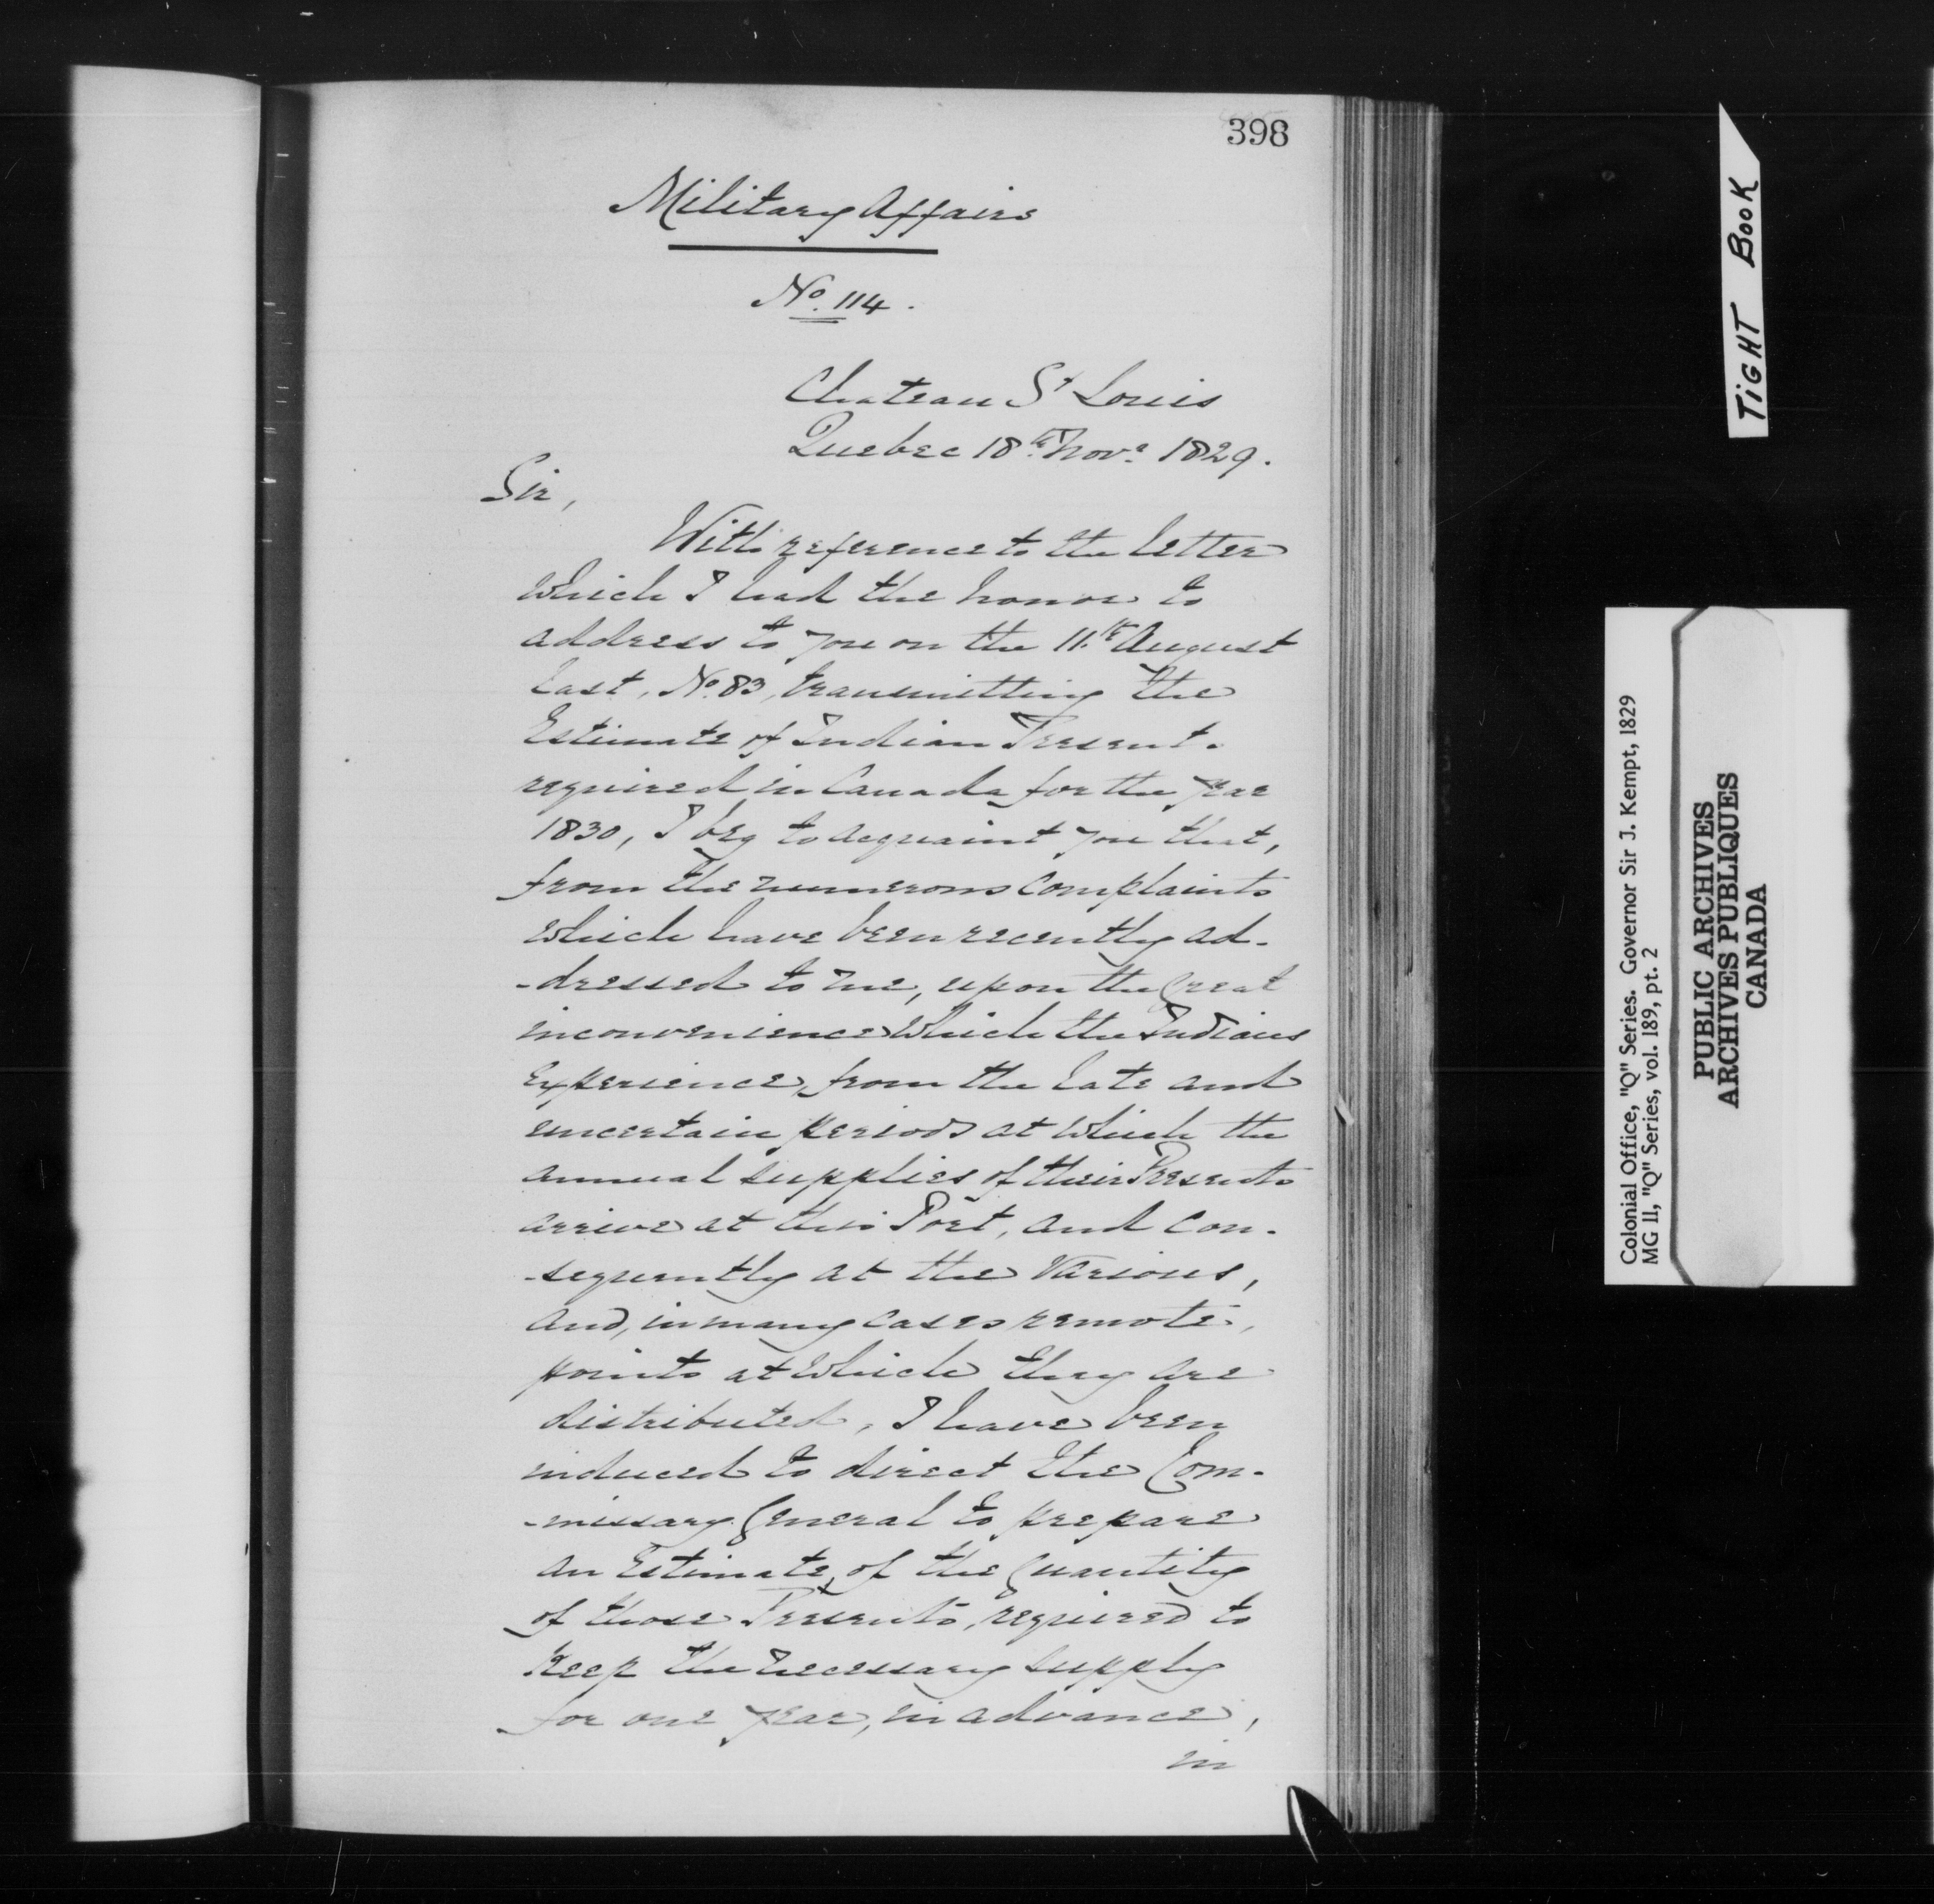 398
Military Affairs
No. 114.
Chateau St Louis
Quebec 18th Novr 1829.
Sir,
With reference to the letter
which I had the honor to
address to you on the 11th August
last, No. 83, transmitting the
Estimate of Indian Presents
required in Canada for the year
1830, I beg to acquaint you that,
from the numerous complaints
which have been recently ad-
-dressed to me, upon the great
inconvenience which the Indians
experience, from the late and
uncertain periods at which the
annual supplies of their Presents
arrive at this Port, and con-
-sequently at the various,
and, in many cases remote,
points at which they are
distributed, I have been
induced to direct the Com-
-missary General to prepare
an Estimate, of the quantity
of those Presents, required to
keep the necessary supply
for one year, in advance,
in
TIGHT BOOK
Colonial Office, "Q" Series. Governor Sir J. Kempt, 1829
MG 11, "Q" Series, vol. 189, pt. 2
PUBLIC ARCHIVES
ARCHIVES PUBLIQUES
CANADA